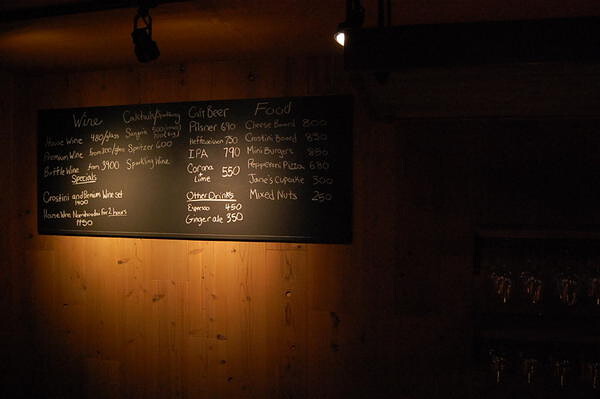 Wine
House Wine 480/glass
Premium Wine from 800/glass
Bottle Wine from 3900
Specials
Crostini and Premium Wine set
1400
House Wine Nomihoudai for 2 hours
1950
Cocktails/Sparkling
Sangria 500
Spritzer 600
Sparkling Wine
Cold Beer
Pilsner 690
Hefeweizen 750
IPA 790
Corona Lime 550
Other Drinks
Espresso 450
Ginger ale 350
Food
Cheese Board 800
Crostini Board 850
Mini Burgers 880
Pepperoni Pizza 680
Jane's Cupcake 300
Mixed Nuts 250